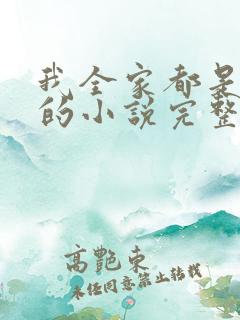 我全家都是
的小说完整
高艷東
未经同意禁止转载